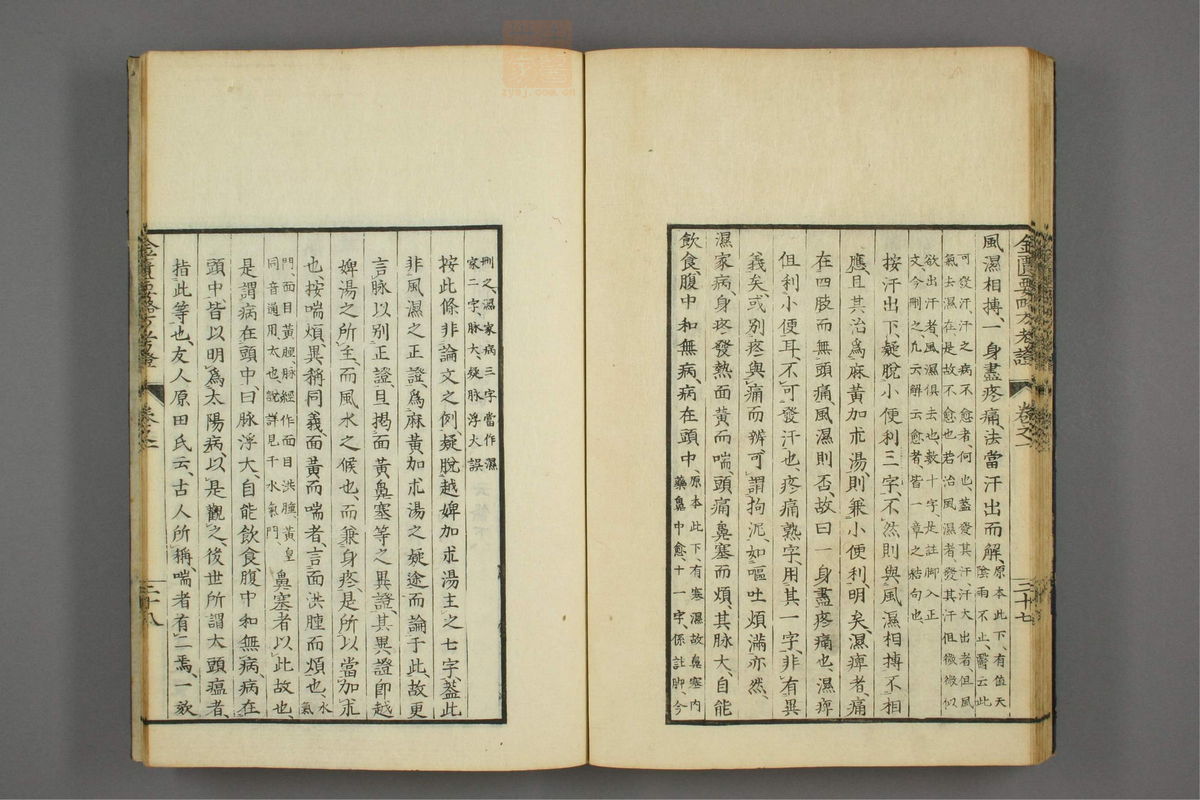 金匱要略方考證　卷之二　三十七
風濕相搏、一身盡疼痛、法當汗出而解、原本此下、有值天陰雨不止、醫云此
可發汗、汗之病不愈者、何也、蓋發其汗、汗大出者、但風氣去濕在、是故不愈也、若治風濕者、發其汗、但微微似
欲出汗者、風濕俱去也、數十字、是註脚入正文、今刪之、凡云解云愈者、皆一章之結句也、
按汗出下、疑脫小便利三字、不然則與風濕相搏不相
應、且其治爲麻黃加朮湯、則兼小便利、明矣、濕痺者、痛
在四肢而無頭痛、風濕則否、故曰一身盡疼痛也、濕痺
但利小便耳、不可發汗也、疼痛熟字、用其一字、非有異
義矣、或別疼與痛而辨、可謂拘泥、如嘔吐煩滿亦然、
濕家病、身疼發熱、面黃而喘、頭痛鼻塞而煩、其脉大、自能
飲食、腹中和無病、病在頭中、原本此下有寒濕故鼻塞內藥鼻中愈十一字、係註脚、今
刪之、濕家病三字、當作濕家二字、脉大、疑脉浮大誤
按此條非論文之例、疑脫越婢加朮湯主之七字、蓋此
非風濕之正證、爲麻黃加朮湯之疑途而論于此、故更
言脉以別正證、且揭面黃鼻塞等之異證、其異證卽越
婢湯之所主、而風水之候也、而兼身疼、是所以當加朮
也、按喘煩、異稱同義、面黃而喘者、言面洪腫而煩也、水氣
門、面目黃腫、脉經作面目洪腫、黃皇同音通用、大也、說詳見于水氣門、鼻塞者以此故也、
是謂病在頭中、曰脉浮大、自能飲食、腹中和無病、病在
頭中、皆以明爲太陽病、以是觀之、後世所謂大頭瘟者、
指此等也、友人原田氏云、古人所稱、喘者有二焉、一欬
金匱要略方考證　卷之二　三十八